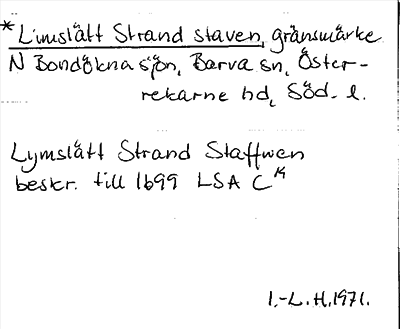 *Limslätt Strand staven, gränsmärke
N Bondökna sjön, Barva sn, Öster-
rekarne hd, Söd. l.
Lymslätt Strand Staffwen
beskr. till 1699 LSA C¹⁴
I.-L. H. 1971.